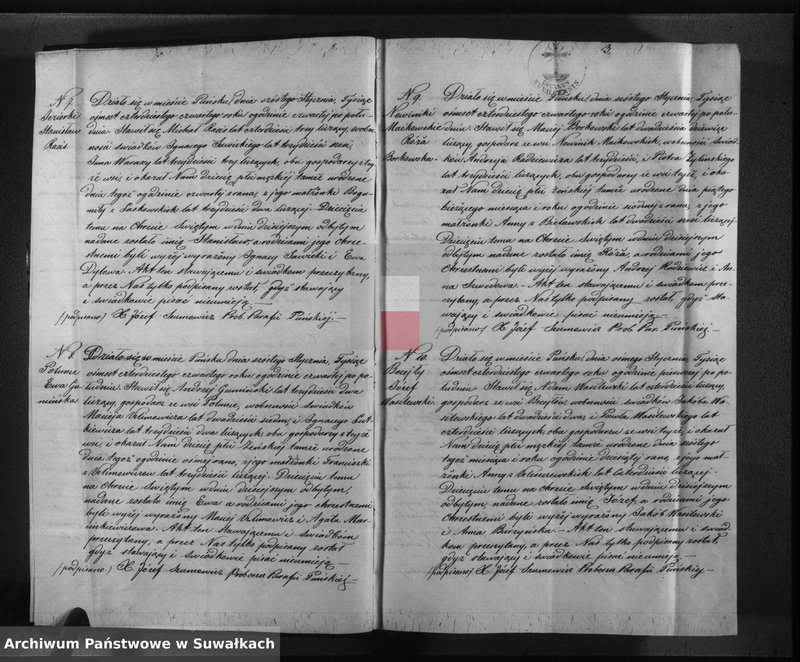 N 7.
Jeziorki
Stanisław
Działo się w mieście Puńsku dnia szóstego Stycznia, Tysiąc
ośmset czterdziestego czwartego roku ogodzinie czwartej po połu-
dniu Stawił się Michał lat czterdzieści trzy liczący, wobec-
ności świadków Ignacego Sawickiego lat trzydzieści
Jana lat trzydzieści trzy liczących, obu gospodarzy z tej-
że wsi, i okazał Nam dziecię płci męzkiej tamże urodzone
dnia tegoż ogodzinie czwartej z rana, z jego małżonki Bogu-
miły z lat trzydzieści dwa liczącej. Dziecięciu
temu na Chrzcie Świętym w dniu dzisiejszym odbytym
nadane zostało imię Stanisław, a rodzicami jego Chrze-
stnemi byli wyżej wyrażony Ignacy Sawicki i Ewa
Akt ten stawającemu i świadkom przeczytany,
a przez Nas tylko podpisany został, gdyż stawający
i świadkowie pisać nieumieją.—
/podpisano/ X. Józef Szumowicz Prob. Parafii Puńskiej—
N 8.
Ewa Gu-
mińska
Działo się w mieście Puńsku dnia szóstego Stycznia, Tysiąc
ośmset czterdziestego czwartego roku ogodzinie czwartej po po-
łudniu Stawił się Andrzej Gumiński lat trzydzieści dwa
liczący, gospodarz ze wsi wobecności świadków
Macieja Klimowicza lat dwadzieścia siedm, i Ignacego
lat trzydzieści dwa liczących, obu gospodarzy z tejże
wsi, i okazał Nam dziecię płci Żeńskiej tamże urodzone
dnia tegoż ogodzinie ósmej rano, z jego małżonki Franciszki
z Klimowiczów lat trzydzieści liczącej. Dziecięciu temu
na Chrzcie Świętym w dniu dzisiejszym odbytym,
nadane zostało imię Ewa a rodzicami jego chrzestnemi
byli wyżej wyrażony Maciej Klimowicz i Agata Mar-
cinkiewiczowa. Akt ten stawającemu i świadkom
przeczytany, a przez Nas tylko podpisany został
gdyż stawający i świadkowie pisać nieumieją.—
/podpisano/ X. Józef Szumowicz Proboszcz Parafii Puńskiej—
3.
N 9.
Nowiniki
Maćkowskie
Róża
Borkowska
Działo się w mieście Puńsku dnia szóstego Stycznia, Tysiąc
ośmset czterdziestego czwartego roku ogodzinie czwartej po połu-
dniu Stawił się Maciej Borkowski lat dwadzieścia dziewięć
liczący, gospodarz ze wsi Nowinik Maćkowskich, wobecności świad-
ków Andrzeja Radziewicza lat trzydzieści, i Piotra Żylińskiego
lat trzydzieści liczących, obu gospodarzy ze wsi tejże, i oka-
zał Nam dziecię płci żeńskiej tamże urodzone dnia piątego
bieżącego miesiąca i roku ogodzinie siódmej z rana, z jego
małżonki Anny z lat dwadzieści sześć liczącej.
Dziecięciu temu na Chrzcie Świętym w dniu dzisiejszym
odbytym nadane zostało imię Róża a rodzicami jego
Chrzestnemi byli wyżej wyrażony Andrzej Radziewicz i An-
na Akt ten stawającemu i świadkom prze-
czytany, a przez Nas tylko podpisany został, gdyż sta-
wający i świadkowie pisać nieumieją.—
/podpisano/ X. Józef Szumowicz Prob. Par. Puńskiej.—
N 10.
Józef
Wasilewski
Działo się w mieście Puńsku dnia ósmego Stycznia, Tysiąc
ośmset czterdziestego czwartego roku ogodzinie pierwszej po po-
łudniu Stawił się Adam Wasilewski lat czterdzieści liczący,
gospodarz ze wsi wobecności świadków Jakóba Wa-
silewskiego lat dwadzieści dwa, i Pawła Wasilewskiego lat
czterdzieści liczących, obu gospodarzy ze wsi tejże, i okazał
Nam dziecię płci męzkiej tamże urodzone dnia szóstego
tegoż miesiąca i roku ogodzinie dziesiątej rano, z jego mał-
żonki Anny z lat czterdzieści liczącej.—
Dziecięciu temu na Chrzcie Świętym w dniu dzisiejszym
odbytym, nadane zostało imię Józef, a rodzicami jego
Chrzestnemi byli wyżej wyrażony Jakób Wasilewski
i Anna Burzyńska.— Akt ten stawającemu i świad-
kom przeczytany, a przez Nas tylko podpisany został
gdyż stawający i świadkowie pisać nieumieją.—
/podpisano/ X. Józef Szumowicz Proboszcz Parafii Puńskiej—
Archiwum Państwowe w Suwałkach